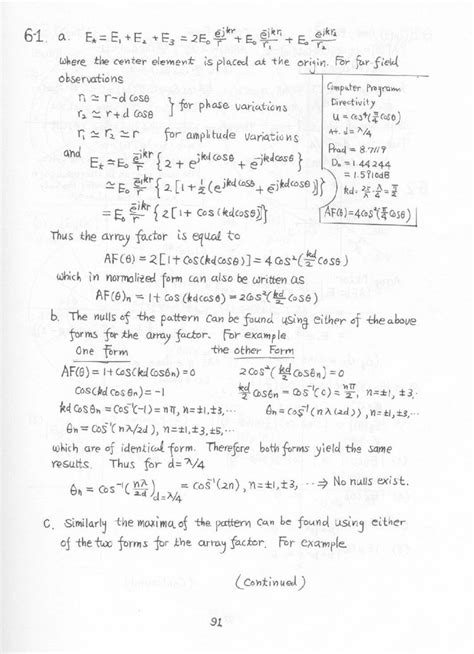 6-1. a. E_t = E_1 + E_2 + E_3 = 2E_0 e^{-jkr}/r + E_0 e^{-jkr_1}/r_1 + E_0 e^{-jkr_2}/r_2
where the center element is placed at the origin. For far-field
observations
r_1 ≃ r - d cosθ
r_2 ≃ r + d cosθ } for phase variations
r_1 ≃ r_2 ≃ r for amplitude variations
and E_t ≃ E_0 e^{-jkr}/r {2 + e^{jkd cosθ} + e^{-jkd cosθ}}
≃ E_0 e^{-jkr}/r {2[1 + ½(e^{jkd cosθ} + e^{-jkd cosθ})]}
= E_0 e^{-jkr}/r {2[1 + cos(kd cosθ)]}
Computer Program
Directivity
U = cos⁴(π/4 cosθ)
At. d = λ/4
Prad = 8.7119
D_0 = 1.44244
= 1.5910dB
kd = 2π/λ · λ/4 = π/2
AF(θ) = 4cos²(π/4 cosθ)
Thus the array factor is equal to
AF(θ) = 2[1 + cos(kd cosθ)] = 4cos²(kd/2 cosθ)
which in normalized form can also be written as
AF(θ)_n = 1 + cos(kd cosθ) = 2cos²(kd/2 cosθ)
b. The nulls of the pattern can be found using either of the above
forms for the array factor. For example
One Form the other Form
AF(θ) = 1 + cos(kd cosθ_n) = 0 2cos²(kd/2 cosθ_n) = 0
cos(kd cosθ_n) = -1 kd/2 cosθ_n = cos⁻¹(0) = nπ/2, n=±1,±3,···
kd cosθ_n = cos⁻¹(-1) = nπ, n=±1,±3,··· θ_n = cos⁻¹(nλ/(2d)), n=±1,±3,···
θ_n = cos⁻¹(nλ/2d), n=±1,±3,±5,···
which are of identical form. Therefore both forms yield the same
results. Thus for d = λ/4
θ_n = cos⁻¹(nλ/2d)_{d=λ/4} = cos⁻¹(2n), n=±1,±3, ··· ⇒ No nulls exist.
c. Similarly the maxima of the pattern can be found using either
of the two forms for the array factor. For example
(continued)
91